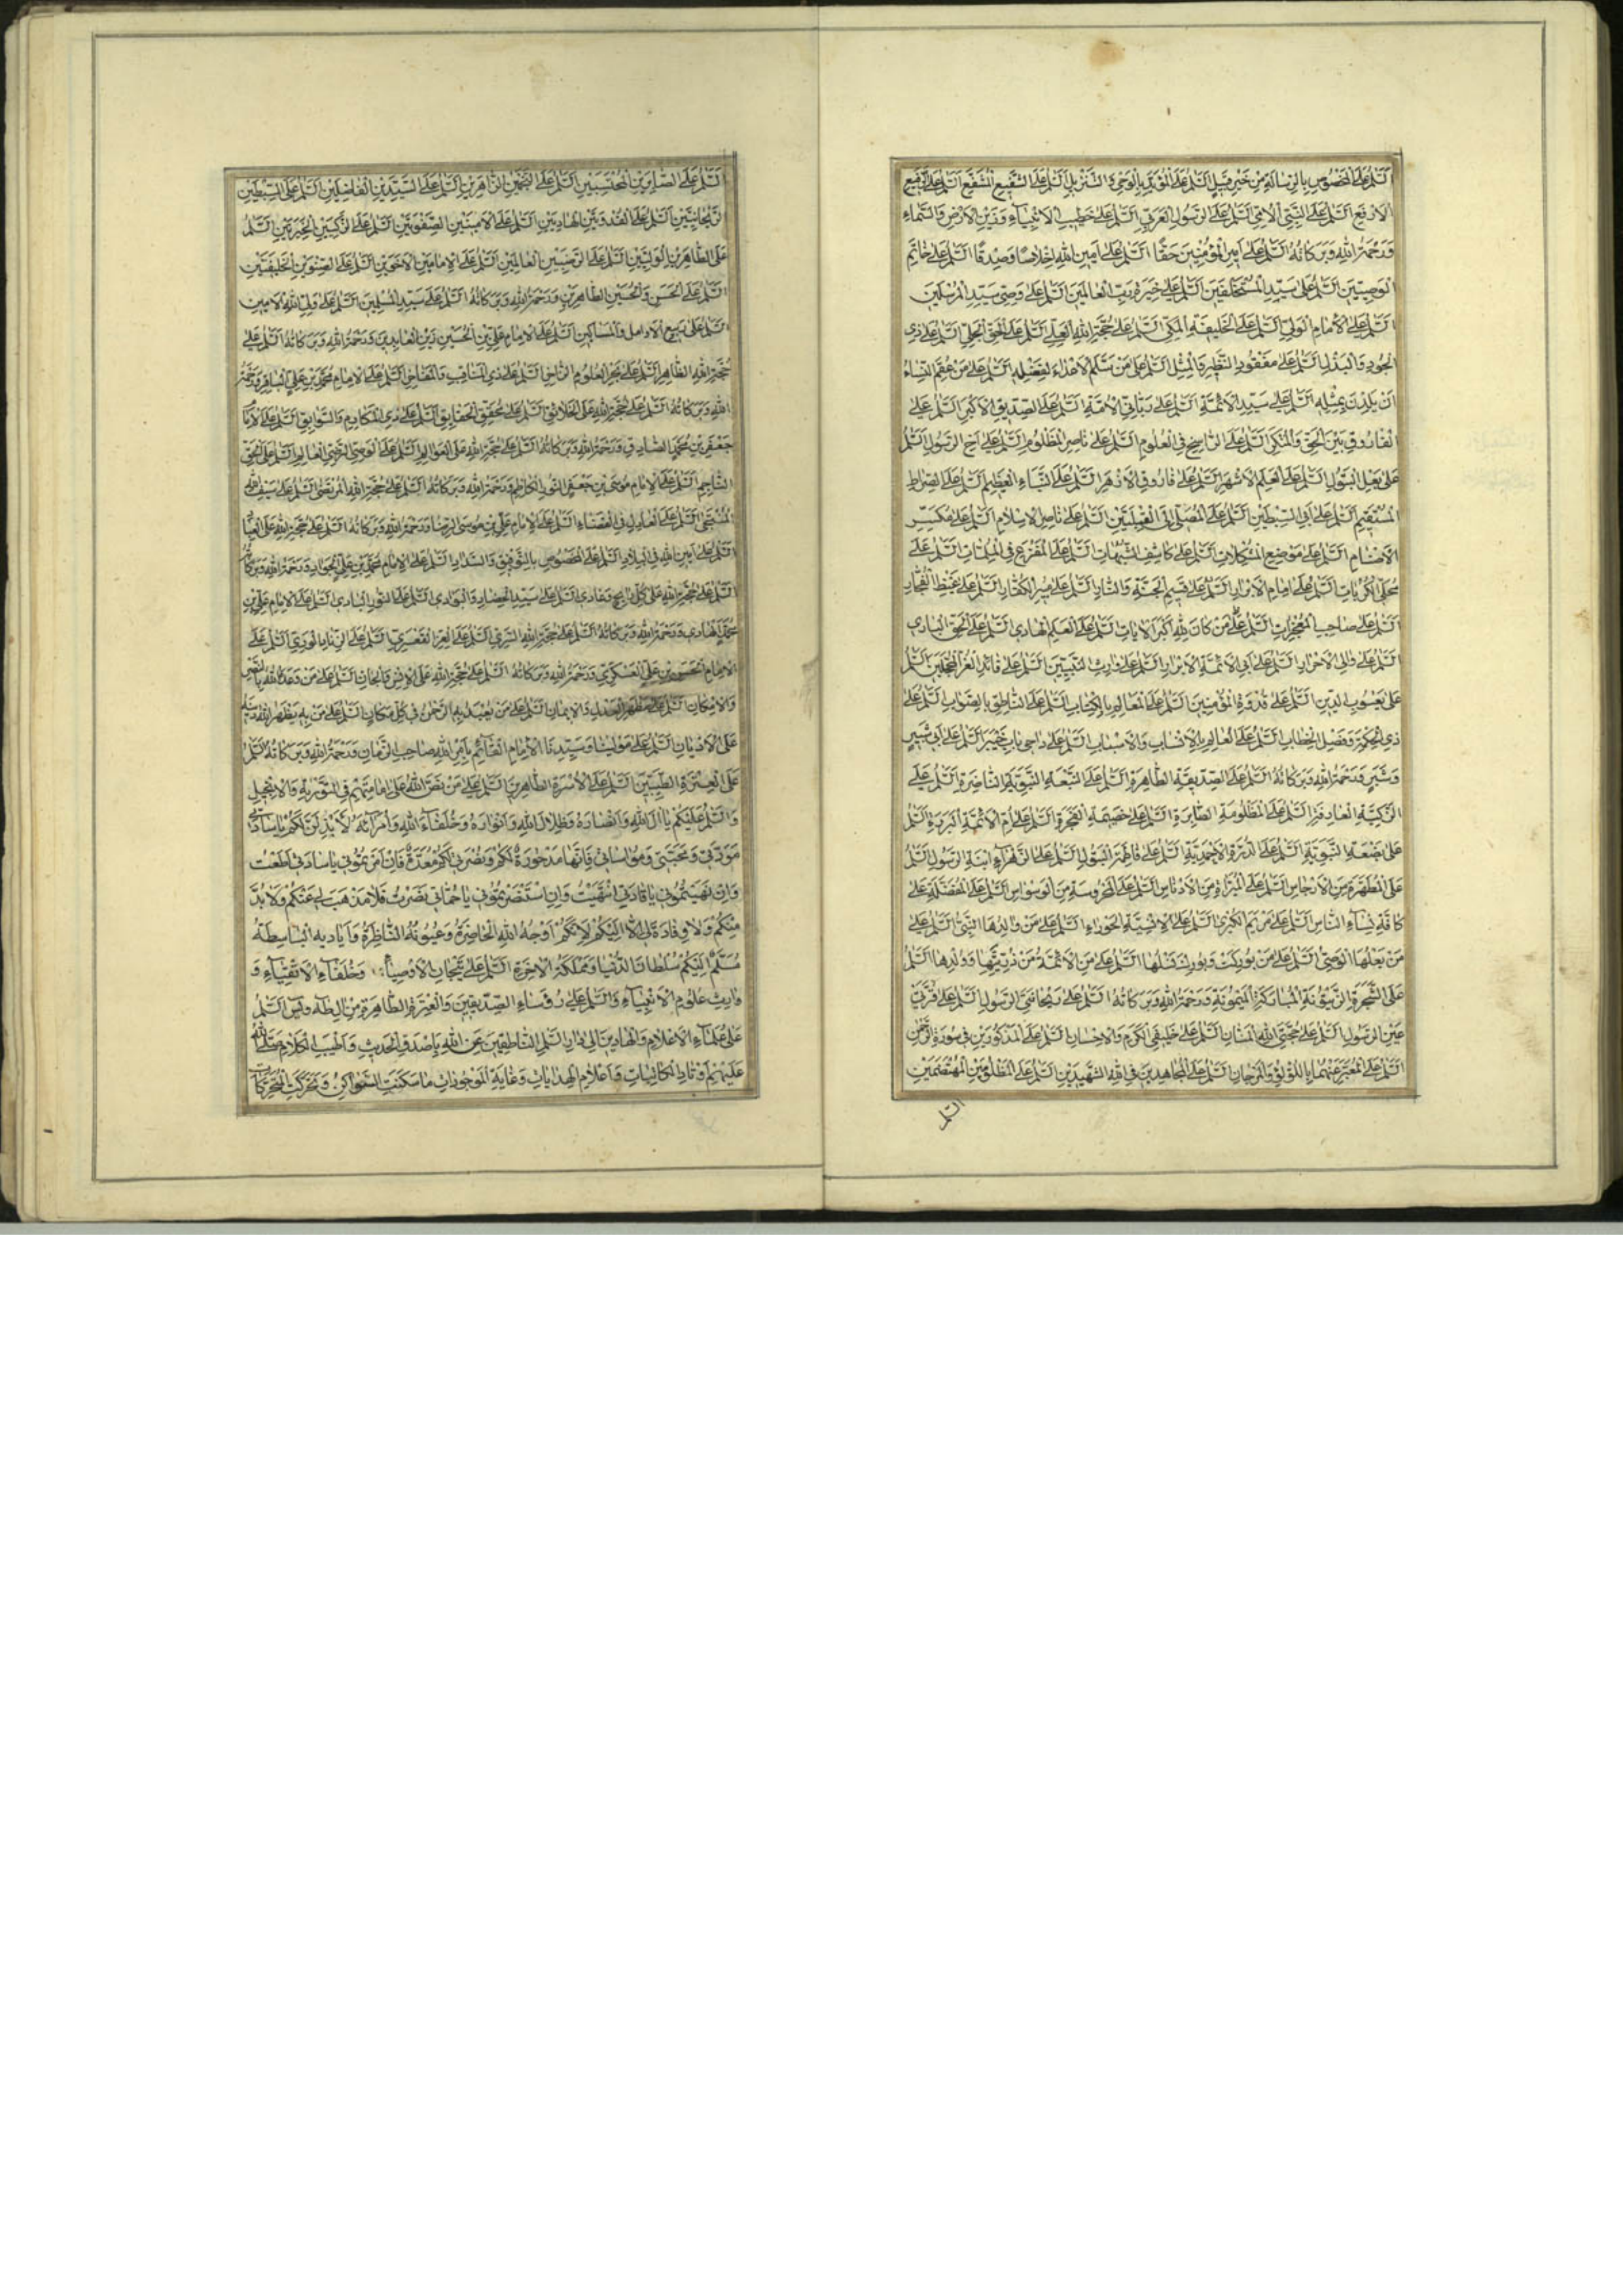 السلم على المخصوص بالرسالة من خير قبيل السلم على المؤيد بالوحي و التنزيل السلم على الشفيع المشفع السلم على الرفيع
الارفع السلم على النبي الامي السلم على الرسول العربي السلم على خطيب الانبياء وزين الارض والسماء
ورحمة الله وبركاته السلم على امير المؤمنين حقا السلم على امين الله اخلاصا وصدقا السلم على خاتم
الوصيين السلم على سيد المستخلفين السلم على خيرة رب العالمين السلم على وصي سيد المرسلين
السلم على الامام الولي السلم على الخليفة المكي السلم على حجة الله العلي السلم على الحق الجلي السلم على ذي
الجود والبذل السلم على مفقود النظير والمثل السلم على من سلم الاعداء لفضله السلم على من عقم النساء
ان يلدن بمثله السلم على سيد الائمة السلم على رباني الامة السلم على الصديق الاكبر السلم على
الفاروق بين الحق والمنكر السلم على الراسخ في العلوم السلم على ناصر المظلوم السلم على اخ الرسول السلم
على بعل البتول السلم على العلم الاشهر السلم على فاروق الازهر السلم على النباء العظيم السلم على الصراط
المستقيم السلم على ابي السبطين السلم على المصلي الى القبلتين السلم على ناصر الاسلام السلم على مكسر
الاصنام السلم على موضع المشكلات السلم على كاشف الشبهات السلم على المفزع في الملمات السلم على
مجلي الكربات السلم على امام الابرار السلم على قسيم الجنة والنار السلم على مبير الكفار السلم على غيظ الفجار
السلم على صاحب المعجزات السلم على من كان لله اكبر الايات السلم على العلم الهادي السلم على الحق البادي
السلم على والي الاحرار السلم على ابي الائمة الابرار السلم على وارث النبيين السلم على قائد الغر المحجلين السلم
على يعسوب الدين السلم على قدوة المؤمنين السلم على العالم بالكتاب السلم على الناطق بالصواب السلم على
ذي الحكمة وفصل الخطاب السلم على العالم بالانساب والاسباب السلم على داحي باب خيبر السلم على ابي شبير
وشبر ورحمة الله وبركاته السلم على الصديقة الطاهرة السلم على النبعة النبوية الناضرة السلم على
الزكية العارفة السلم على المظلومة الصابرة السلم على خصيمة الفجرة السلم على ام الائمة البررة السلم
على بضعة النبوية السلم على الدرة الاحمدية السلم على فاطمة البتول السلم على الزهراء ابنة الرسول السلم
على المطهرة من الارجاس السلم على المبراة من الادناس السلم على المحروسة من الوسواس السلم على المفضلة على
كافة نساء الناس السلم على مريم الكبرى السلم على الانسية الحوراء السلم على من والدها النبي السلم على
من بعلها الوصي السلم على من بوركت وبورك نسلها السلم على من الائمة من ذريتها وولدها السلم
على الشجرة الزيتونة المباركة الميمونة ورحمة الله وبركاته السلم على ريحانتي الرسول السلم على قرتي
عين الرسول السلم على حجتي الله المنان السلم على خليفي الكرم والاحسان السلم على المذكورين في سورة الرحمن
السلم على المعبر عنهما باللؤلؤ والمرجان السلم على المجاهدين في الله الشهيدين السلم على المظلومين المهتضمين
السلم
السلم على الصابرين المحتسبين السلم على النجمين الزاهرين السلم على السيدين الفاضلين السلم على السبطين
الريحانتين السلم على القدوتين الهاديين السلم على الامينين الصفوتين السلم على الزكيين الخيرتين السلم
على الطاهرين الوليين السلم على الرضيين العالمين السلم على الامامين الاخوين السلم على الصنوين الخليفتين
السلم على الحسن والحسين الطاهرين ورحمة الله وبركاته السلم على سيد المسلمين السلم على ولي الله الامين
السلم على ربيع الارامل والمساكين السلم على الامام علي بن الحسين زين العابدين ورحمة الله وبركاته السلم على
حجة الله الظاهر السلم على بحر العلوم الزاخر السلم على ذي المناقب والمفاخر السلم على الامام محمد بن علي الباقر ورحمة
الله وبركاته السلم على حجة الله على الخلائق السلم على محقق الحقايق السلم على ذي المكارم والسوابق السلم على الامام
جعفر بن محمد الصادق ورحمة الله وبركاته السلم على حجة الله على العوالم السلم على الوصي الرضي العالم السلم على الحق
الناجم السلم على الامام موسى بن جعفر النور الكاظم ورحمة الله وبركاته السلم على حجة الله المرتضى السلم على سيف الله
المنتضى السلم على العادل في القضاء السلم على الامام علي بن موسى الرضا ورحمة الله وبركاته السلم على حجة الله على العباد
السلم على امين الله في البلاد السلم على المخصوص بالتوفيق والسداد السلم على الامام محمد بن علي الجواد ورحمة الله وبركاته
السلم على حجة الله على كل رايح وغادي السلم على سيد الحضار والبوادي السلم على النور البادي السلم على الامام علي بن
محمد الهادي ورحمة الله وبركاته السلم على حجة الله السري السلم على العز القعسري السلم على الزناد الوري السلم على
الامام الحسن بن علي العسكري ورحمة الله وبركاته السلم على حجة الله على الانس والجان السلم على من وعد الله بالنصر
والامكان السلم على مظهر العدل والايمان السلم على من يعبد به الرحمن في كل مكان السلم على من به يظهر الله دينه
على الاديان السلم على مولينا وسيدنا الامام القائم بامر الله صاحب الزمان ورحمة الله وبركاته السلم
على العترة الطيبين السلم على الاسرة الطاهرين السلم على من نص الله على امامتهم في التورية والانجيل
والسلم عليكم يا آل الله وانصاره وظلال الله وانواره وخلفاء الله وامرائه لابذلن لكم يا ساداتي
مودتي ومحبتي ومواساتي فانها مدخورة لكم ونصرتي لكم معدة فان امرتموني يا سادتي اطعت
وان نهيتموني يا قادتي انتهيت وان استنصرتموني يا حماتي نصرت فلا مذهب لي عنكم ولا بد
منكم ولا وفادة لي الا اليكم لانكم اوجه الله الحاضرة وعيونه الناظرة واياديه الباسطة
مسلم اليكم سلطان الدنيا ومملكة الاخرة السلم على تيجان الاوصياء وخلفاء الاتقياء و
وارث علوم الانبياء والسلم على رؤساء الصديقين والعترة الطاهرة من ال طه ويس السلم
على علماء الاعلام والهادين الى دار السلم الناطقين عن الله باصدق الحديث واطيب الكلام صلى الله
عليهم اوتاد الكائنات واعلام الهدايات وغاية الموجودات ما سكنت السواكن وتحركت المتحركات